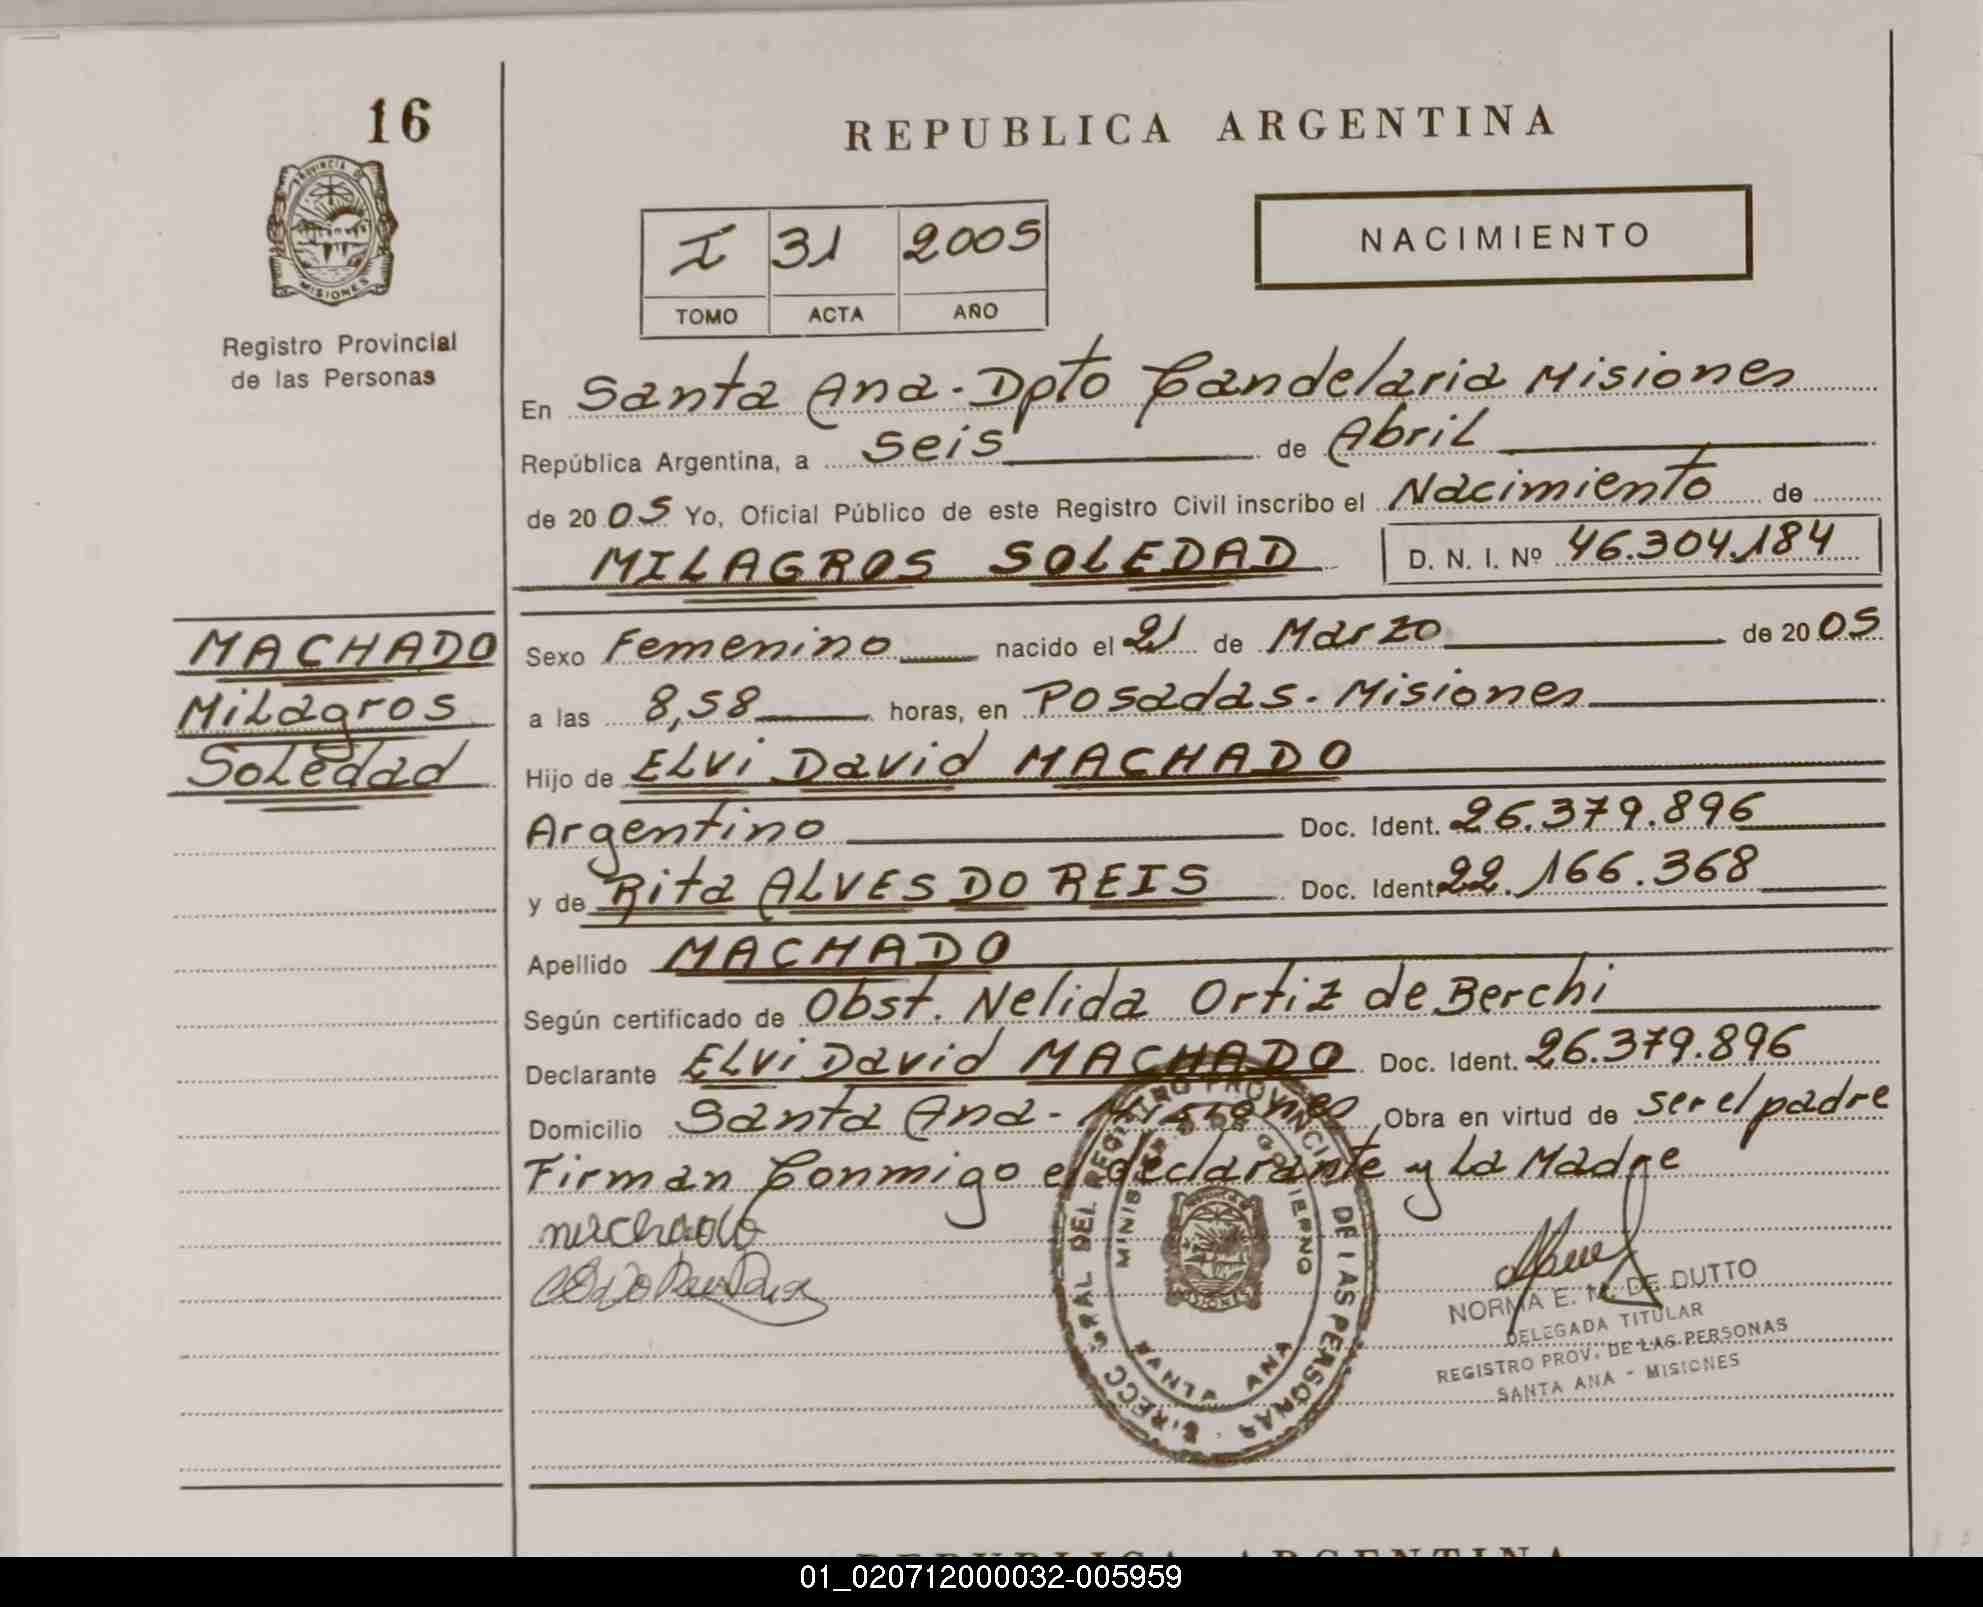 16
PROVINCIA DE
MISIONES
Registro Provincial
de las Personas
MACHADO
Milagros
Soledad
REPUBLICA ARGENTINA
I 31 2005
TOMO ACTA AÑO
NACIMIENTO
En Santa Ana - Dpto Candelaria Misiones
República Argentina, a seis de Abril
de 2005 Yo, Oficial Público de este Registro Civil inscribo el Nacimiento de
MILAGROS SOLEDAD D. N. I. Nº 46.304.184
Sexo Femenino nacido el 21 de Marzo de 2005
a las 8,58 horas, en Posadas - Misiones
Hijo de ELVi David MACHADO
Argentino Doc. Ident. 26.379.896
y de Rita ALVES DO REIS Doc. Ident. 22.166.368
Apellido MACHADO
Según certificado de Obst. Nelida Ortiz de Berchi
Declarante ELVi David MACHADO Doc. Ident. 26.379.896
Domicilio Santa Ana - Misiones Obra en virtud de ser el padre
Firman Conmigo el declarante y La Madre
machado
DIRECC. GRAL DEL REGISTRO PROVINCIAL DE LAS PERSONAS
MINISTERIO DE GOBIERNO
MISIONES
SANTA ANA
NORMA E. M. DE DUTTO
DELEGADA TITULAR
REGISTRO PROV. DE LAS PERSONAS
SANTA ANA - MISIONES
REPUBLICA ARGENTINA
01_020712000032-005959